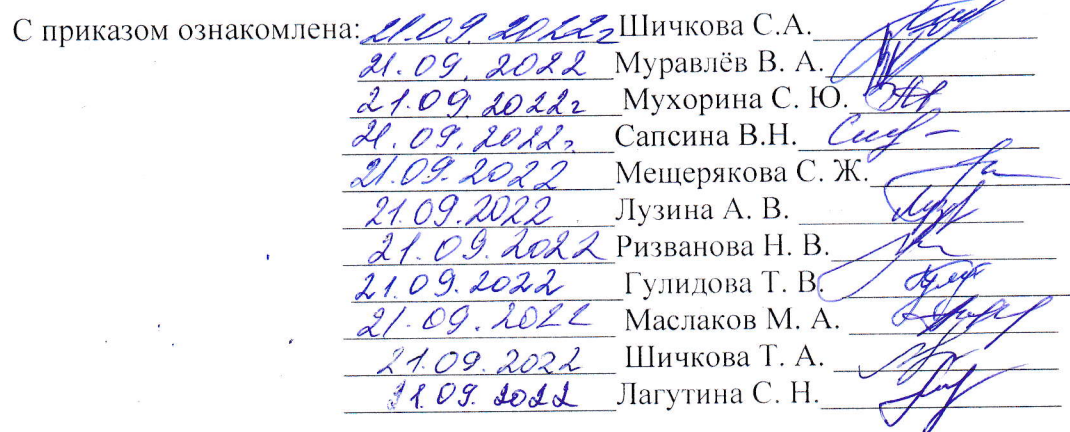 С приказом ознакомлена: 21.09.2022г Шичкова С.А.
21.09.2022 Муравлёв В. А.
21.09.2022г Мухорина С. Ю.
21.09.2022г Сапсина В.Н.
21.09.2022 Мещерякова С. Ж.
21.09.2022 Лузина А. В.
21.09.2022 Ризванова Н. В.
21.09.2022 Гулидова Т. В.
21.09.2022 Маслаков М. А.
21.09.2022 Шичкова Т. А.
21.09.2022 Лагутина С. Н.